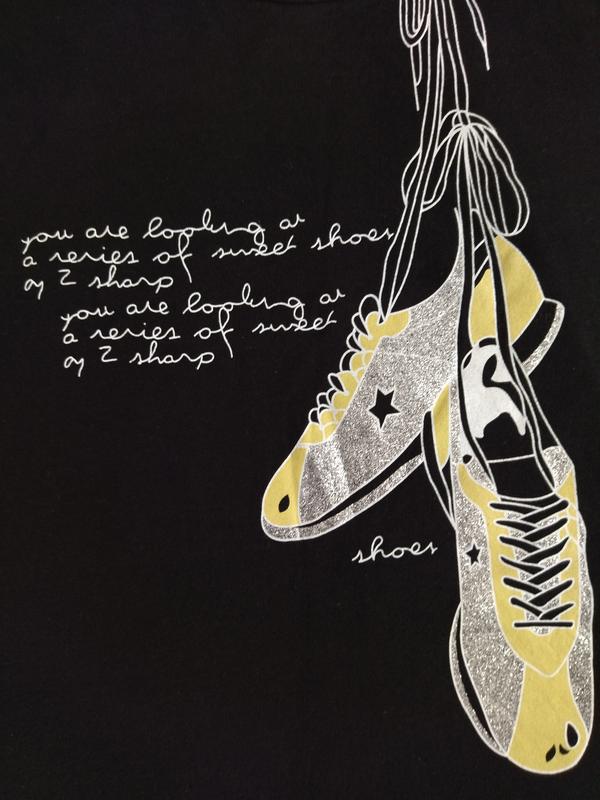 you are looking at
a series of sweet shoes
of 2 sharp
you are looking at
a series of sweet
of 2 sharp
shoes